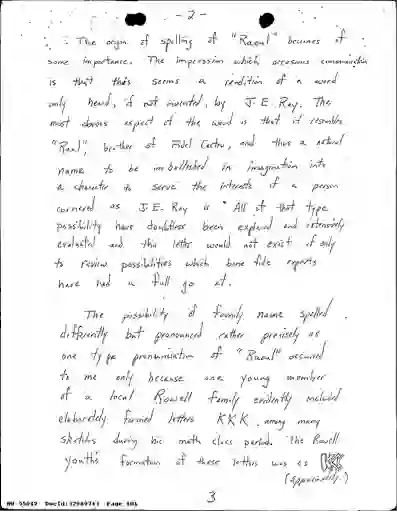 - 2 -
The origin of spelling of "Raoul" becomes of
some importance. The impression which occasions communication
is that this seems a rendition of a word
only heard, if not invented, by J. E. Ray. The
most obvious aspect of the word is that it resembles
"Raul", brother of Fidel Castro, and thus a natural
name to be embellished in imagination into
a character to serve the interests of a person
cornered as J. E. Ray is. All of that type
possibility have doubtless been explored and extensively
evaluated and this letter would not exist if only
to review possibilities which bona fide experts
have had a full go at.
The possibility of family name spelled
differently but pronounced rather precisely as
one type pronunciation of "Raoul" occurred
to me only because one young member
of a local Rowell family evidently included
elaborately formed letters KKK, among many
sketches during his math class period. The Rowell
youth's formation of these letters was as KKK
(approximately.)
3
DocId:32989741 Page 501